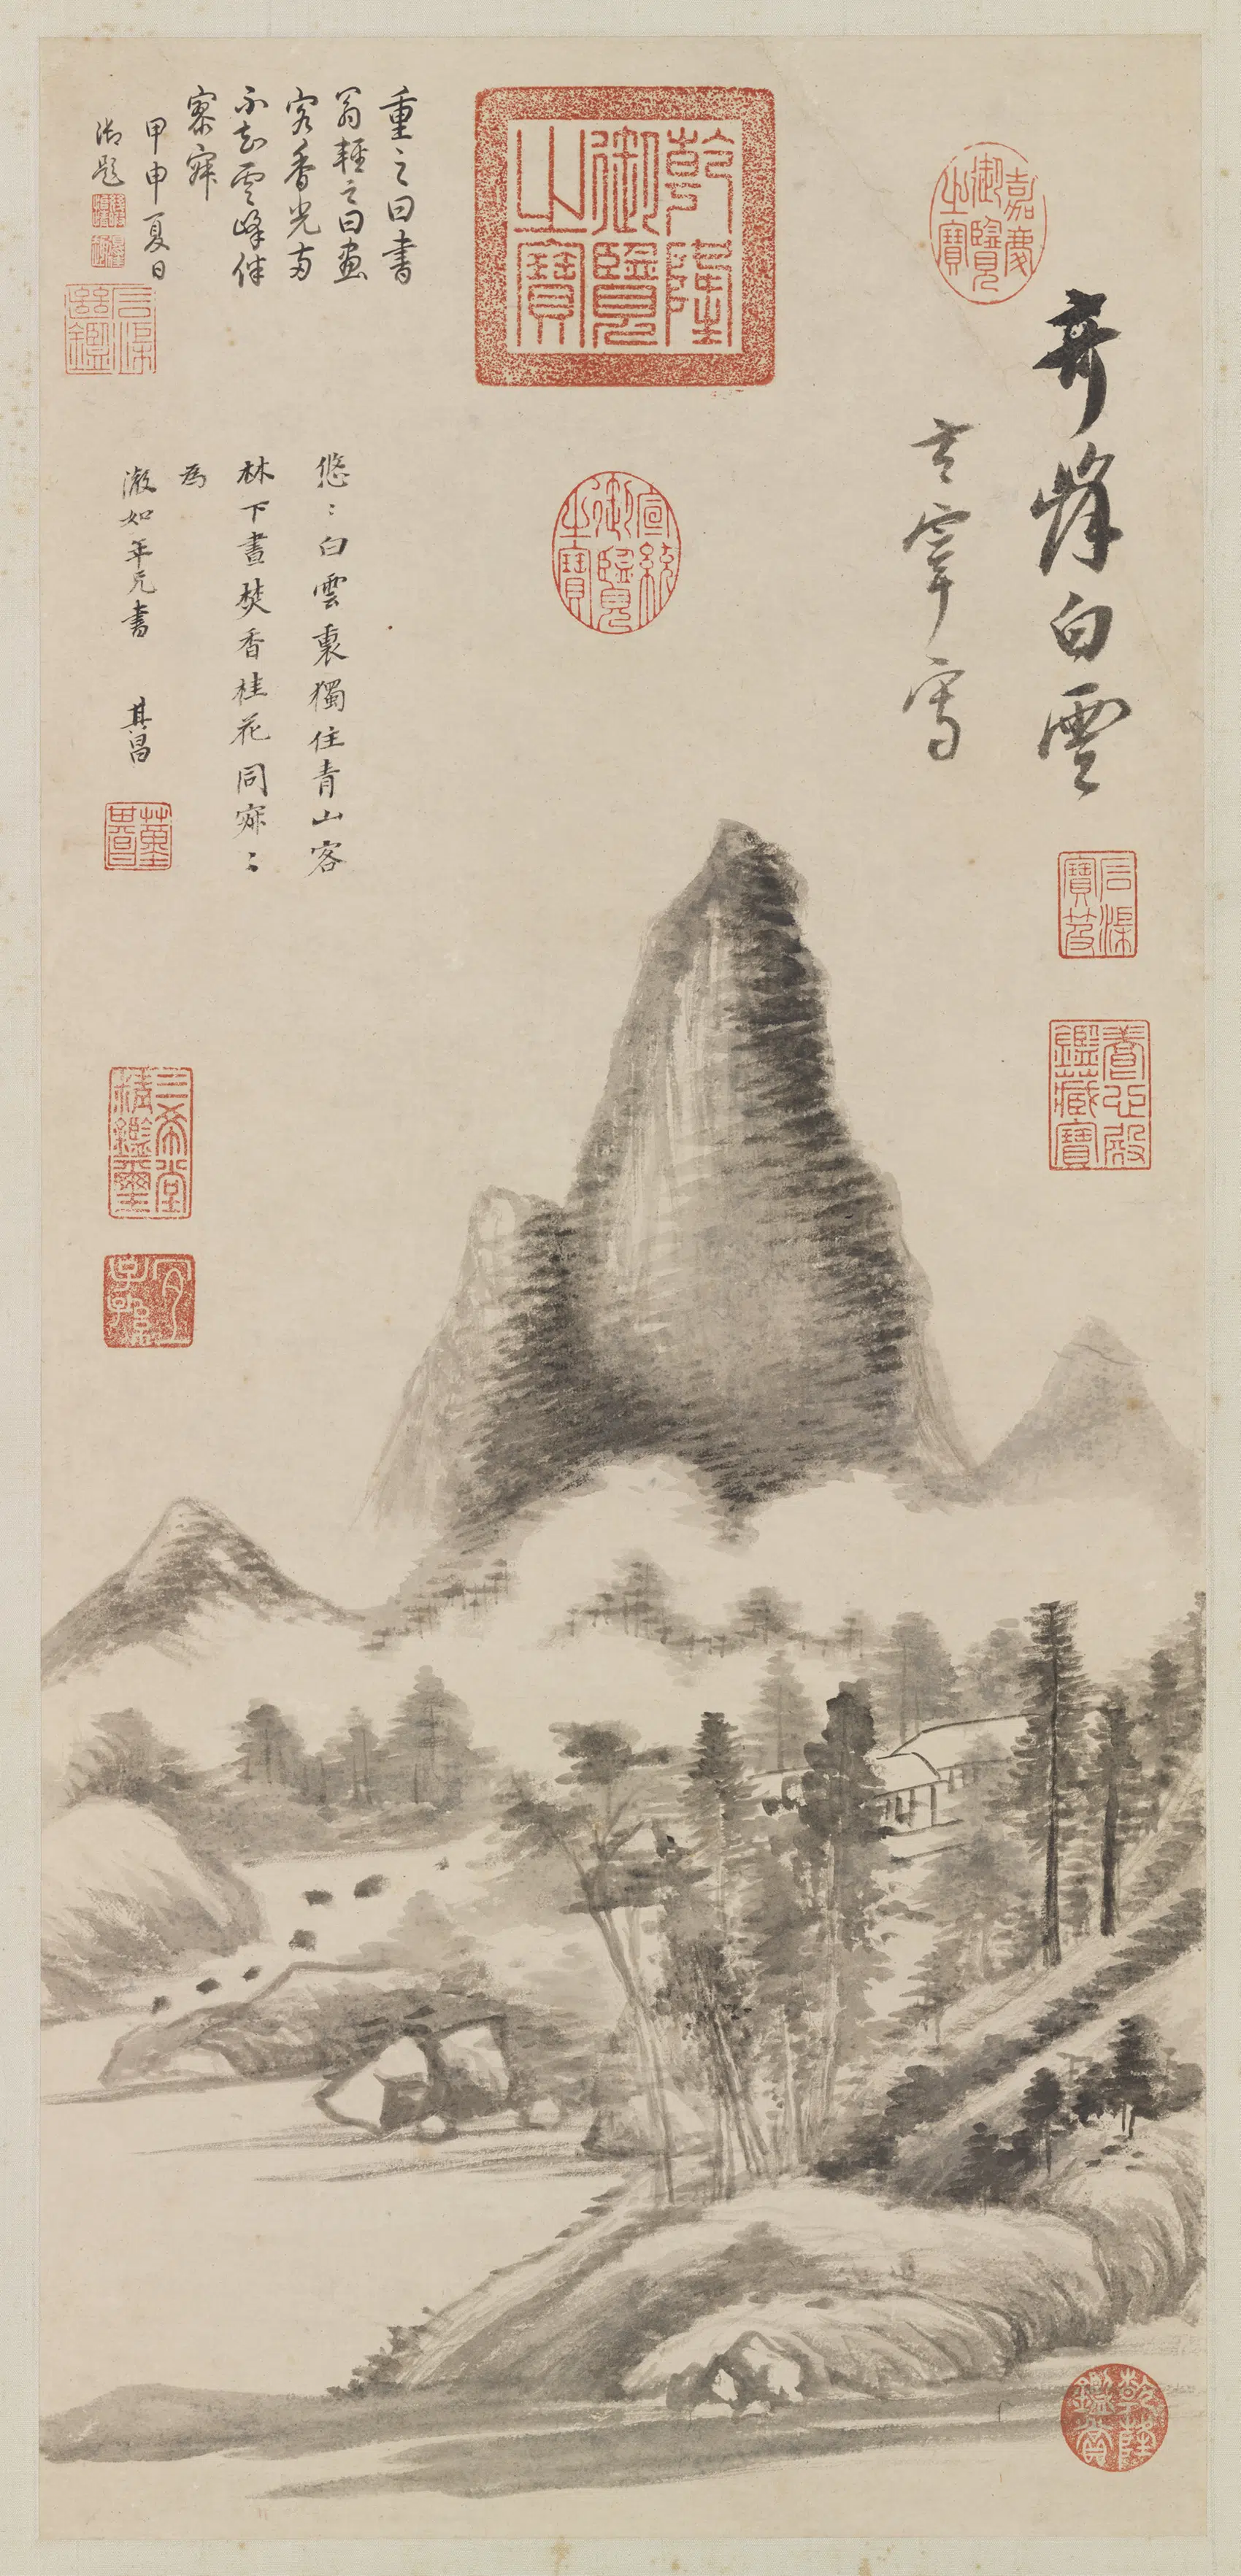 嘉慶御覽之寶
奇峰白雲
玄宰寫
石渠寶笈
養心殿鑑藏寶
乾隆御覽之寶
宣統御覽之寶
重之曰書
翁輕之曰畫
客香光兩
不知雲峰伴
寥寂
甲申夏日
御題
石渠繼鑑
悠〻白雲裏獨住青山客
林下晝焚香桂花同寂〻
為
澂如年兄書 其昌
三希堂精鑑璽
宜子孫
乾隆鑑賞